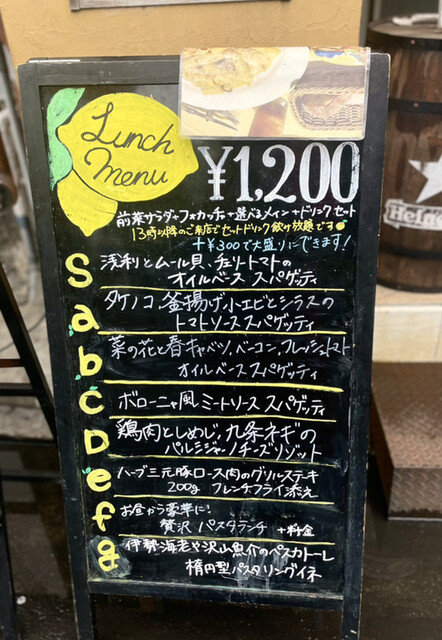 Lunch
Menu
¥1,200
前菜サラダ+フォカッチャ+選べるメイン+ドリンクセット
13時以降のご来店でセットドリンク飲み放題です
+¥300で大盛りにできます!
S 浅利とムール貝、チェリートマトの
オイルベース スパゲッティ
a タケノコ、釜揚げ小エビとシラスの
トマトソーススパゲッティ
b 菜の花と春キャベツ、ベーコン、フレッシュトマト
オイルベース スパゲッティ
C ボローニャ風ミートソース スパゲッティ
D 鶏肉としめじ、九条ネギの
パルミジャーノチーズリゾット
e ハーブ三元豚ロース肉のグリルステーキ
200g フレンチフライ添え
f お昼から豪華に!
贅沢 パスタランチ +料金
g 伊勢海老や沢山魚介のペスカトーレ
楕円型パスタリングイネ
Hein